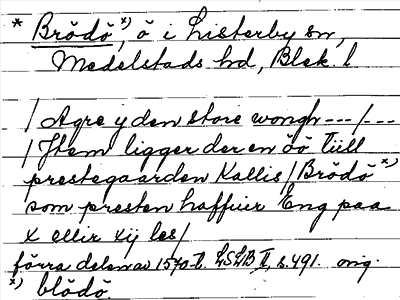 * Brödö x), ö i Listerby sn,
Medelstads hd, Blek. l
/ Agre y den store wongh --- / ---
/ Item ligger der en öö tiill
prestegaarden Kallis / Brödö x)
som presten haffuir Eng paa
x ellir xij les /
förra delen av 1570-t. LSLB II, s. 491. orig.
x) blödö.